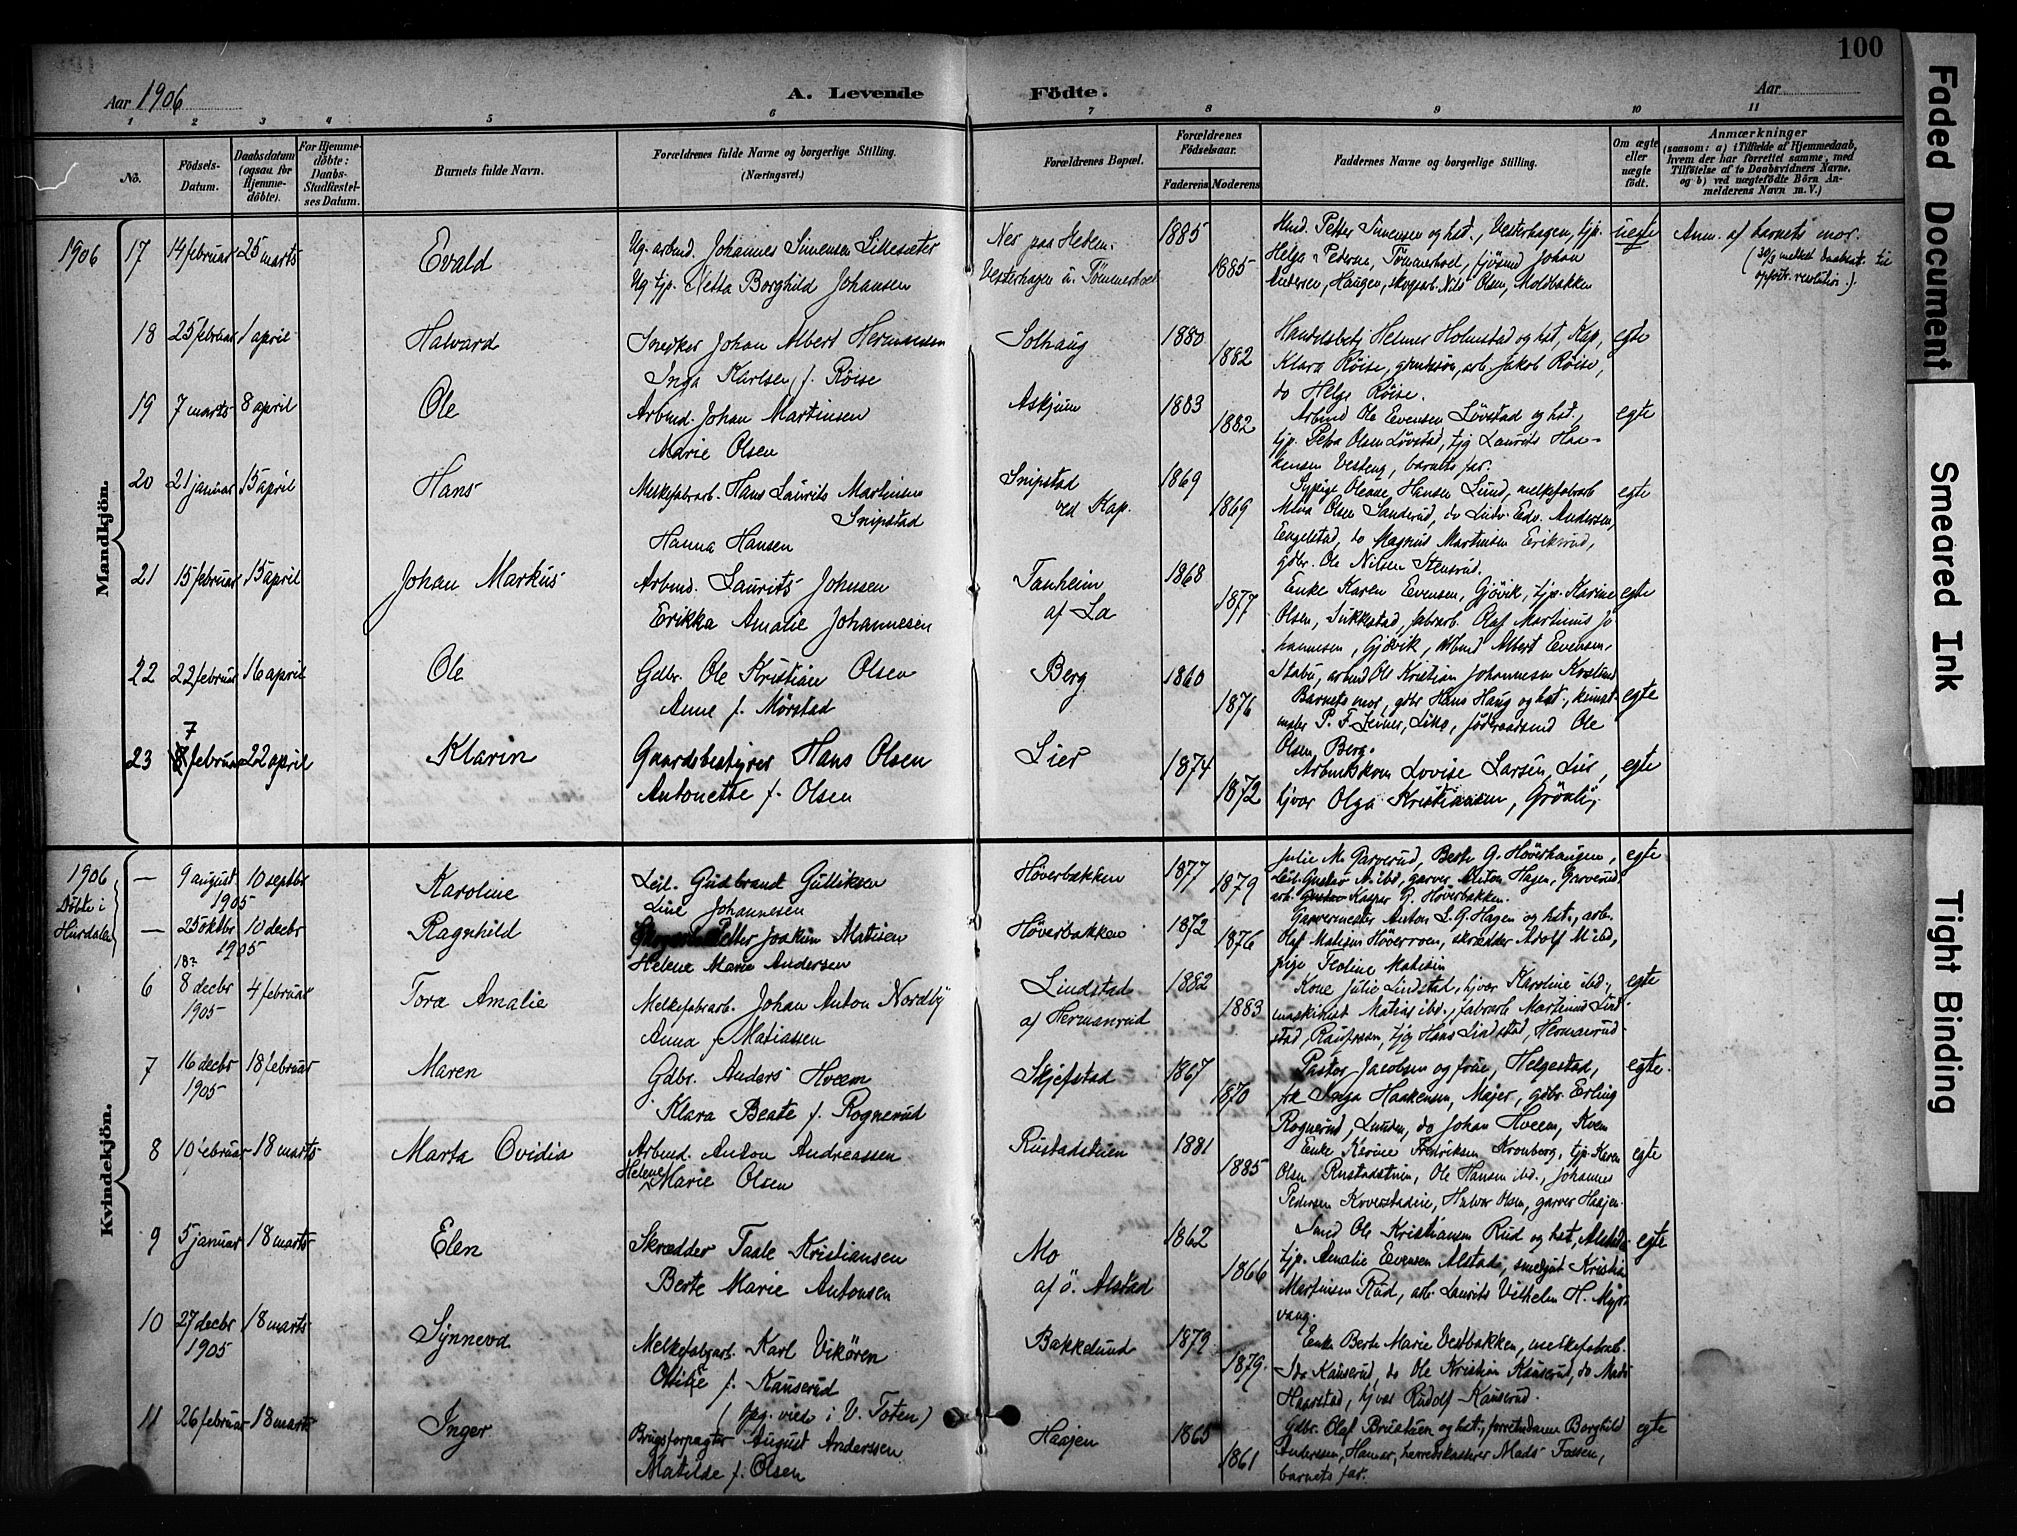 100
Aar 1906
A. Levende Födte.
Aar
1 2 3 4 5 6 7 8 9 10 11
No.
Födsels-Datum.
Daabsdatum (ogsaa for Hjemme-döbte).
For Hjemme-döbte: Daabs-Stadfæstel-ses Datum.
Barnets fulde Navn.
Forældrenes fulde Navne og borgerlige Stilling. (Næringsvei.)
Forældrenes Bopæl.
Forældrenes Födselsaar.
Faderens Moderens
Faddernes Navne og borgerlige Stilling.
Om ægte eller uægte födt.
Anmærkninger
(saasom: a) i Tilfælde af Hjemmedaab,
hvem der har forrettet samme, med
Tilföielse af to Daabsvidners Navne,
og b) ved uægtefödte Börn An-
melderens Navn m. V.)
Mandkjön.
1906 17 14 februar 25 marts Evald
Ug. arbmd. Johannes Simensen Lillesæter
Ug. tjp. Netta Borghild Johansen
Nes paa Hedem.
Vesterhagen u. Tömmerhol
1885 1885
Petter Simensen og hst., Vesterhagen, tjp.
Helga Pederse, Tömmerhoel, Johan
Andersen, Haugen, skogarb. Nils Olsen, Moldbakken
uegte
Anm. af barnets mor.
18 25 februar 1 april Halvard
Snedker Johan Albert Hermansen
Inga Karlsen f. Röise
Solhaug 1880 1882
Handelsbetj Helmer Holmstad og hst, Kap,
Klara Röise, arb. Jakob Röise,
do Helge Röise.
egte
19 7 marts 8 april Ole
Arbmd. Johan Martinsen
Marie Olsen
Askjum 1883 1882
Arbmd Ole Evensen Lövstad og hst.,
tjp. Petra Olsen Lövstad, tjg Laurits Haa-
kensen Vesteng, barnets far.
egte
20 21 januar 15 april Hans
Melkefabarb. Hans Laurits Martinsen
Snipstad
Hanna Hansen
Snipstad
ved Kap.
1869 1869
Sypige Oleane Hansen Lund, melkefabarb
Olsen Sanderud, do Ludv. Edv. Andersen,
Engelstad, do Magnus Martinsen Eriksrud,
gdbr. Ole Nilsen Stensrud.
egte
21 15 februar 15 april Johan Markus
Arbmd. Laurits Johnsen
Erikka Amalie Johannesen
Tanheim
af La
1868 1877
Enke Karen Evensen, Gjövik, tjp. Karine
Olsen, Sukkestad, fabarb. Olaf Martinius Jo
hannesen, Gjövik, arbmd Albert Evensen,
Stabu, arbmd Ole Kristian Johannesen
egte
22 22 februar 16 april Ole
Gdbr. Ole Kristian Olsen
Anne f. Mörstad
Berg 1860 1876
Barnets mor, gdbr Hans Haug og hst., kunst-
maler P. F. Ole
Olsen Berg.
egte
23 7 februar 22 april Klarin
Gaardsbestyrer Hans Olsen
Antonette f. Olsen
Lier 1874 1872
Lovise Larsen, Lier,
tjvar Olga Kristiansen, Grönli
egte
Kvindekjön.
1906
Döbte i
Hurdalen
— 9 august 1905 10 septbr Karoline
Leil. Gudbrand Gulliksen
Line Johannesen
Höverbakken 1877 1879
Julie M. Garverud, Berte G. Höverhaugen,
Leil. Gustav A. ibd, garver Anton Hagen, Garverud,
arb. Kaspar G. Höverbakken.
egte
— 25 oktbr 1905 10 decbr Ragnhild
Petter Joakim Matisen
Helene Marie Andersen
Höverbakken 1872 1876
Garvermester Anton L. G. Hagen og hst., arb.
Olaf Matisen Höverroen, skrædder Adolf M. ibd,
pige Teoline Matisen
6 8 decbr 1905 4 februar Tora Amalie
Melkefabarb. Johan Anton Nordby
Anna f Matiassen
Lindstad
af Hermanrud
1882 1883
Kone Julie Lindstad, tjvar Karoline ibd.,
maskinist Matias ibd., fabarb Martinius Lind-
stad, tjg Hans Lindstad, Hermanrud
egte
7 16 decbr 1905 18 februar Maren
Gdbr. Anders Hveem
Klara Beate f. Rognerud
Skjefstad 1867 1870
Pastor Jacobsen og frue, Helgestad,
frk Inga Haakensen, Majer, gdbr. Erling
Rognerud, Lunden, do Johan Hveem, Kvem
egte.
8 10 februar 18 marts Marta Ovidia
Arbmd. Anton Andreassen
Helene Marie Olsen
Rustadstuen 1881 1885
Enke Karine Fredriksen Kronberg, tjp. Karen
Olsen Rustadstuen, Ole Hansen ibd., Johannes
Pedersen Kvverstadeie, Halvor Olsen, garver Haajen
egte
9 5 januar 18 marts Elen
Skrædder Taale Kristiansen
Berte Marie Antonsen
Mo
af ö. Alstad
1862 1866
Smed Ole Kristiansen Rud og hst, Alstad
tjp. Amalie Evensen Alstad, smedgut Kristian
Martinsen Rud, arb. Laurits Vilhelm H. Myr-
vang.
egte
10 27 decbr 1905 18 marts Synneva
Melkefabarb. Karl Vikören
Otilie f. Kauserud
(opg. viede i V. Toten)
Bakkelund 1879 1879.
Enke Berte Marie Vestbakken, melkefabarb.
Kauserud, do Ole Kristian Kauserud, do Mads
Haarstad, tjvar Rudolf Kauserud.
11 26 februar 18 marts Inger
Brugsforpagter August Anderssen
Matilde f. Olsen
Haajen 1865 1861
Gdbr. Olaf Brustuen og hst., forretn Borghild
Anderssen, Hamar, herredskasserer Mads Fossen,
barnets far.
egte
Faded Document
Smeared Ink
Tight Binding